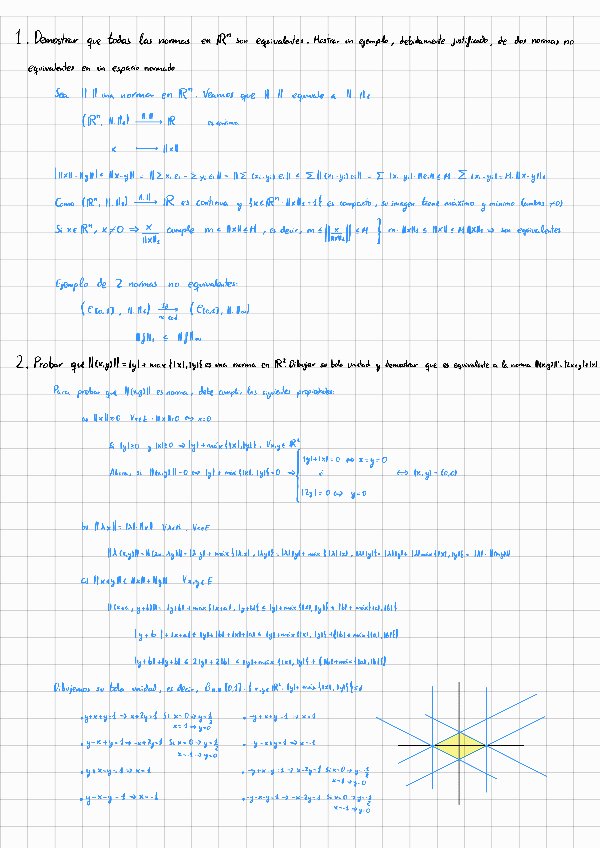 1. Demostrar que todas las normas en ℝⁿ son equivalentes. Mostrar un ejemplo, debidamente justificado, de dos normas no
equivalentes en un espacio normado
Sea || || una norma en ℝⁿ. Veamos que || || equivale a || ||₁
(ℝⁿ, ||·||₁) → ℝ es continua
x → ||x||
| ||x|| - ||y|| | ≤ ||x-y|| = ||Σ xᵢ eᵢ - Σ yᵢ eᵢ|| = ||Σ (xᵢ-yᵢ) eᵢ|| ≤ Σ ||(xᵢ-yᵢ) eᵢ|| = Σ |xᵢ-yᵢ| ||eᵢ|| ≤ M Σ |xᵢ-yᵢ| = M ||x-y||₁
Como (ℝⁿ, ||·||₁) → ℝ es continua y {x∈ℝⁿ: ||x||₁=1} es compacto, su imagen tiene máximo y mínimo (ambos ≠0)
Si x∈ℝⁿ, x≠0 ⇒ x/||x||₁ cumple m ≤ ||x|| ≤ M, es decir, m ≤ ||x/||x||₁|| ≤ M } m·||x||₁ ≤ ||x|| ≤ M ||x||₁ ⇒ son equivalentes
Ejemplo de 2 normas no equivalentes:
(C[0,1], ||·||₁) → (C[0,1], ||·||∞)
||f||₁ ≤ ||f||∞
2. Probar que ||(x,y)|| = |y| + max{|x|,|y|} es una norma en ℝ². Dibujar su bola unidad y demostrar que es equivalente a la norma
Para probar que ||(x,y)|| es norma, debe cumplir las siguientes propiedades:
a) ||x|| ≥ 0 ∀x∈E · ||x||=0 ⇔ x=0
|y|≥0 y |x|≥0 ⇒ |y| + máx{|x|,|y|}, ∀x,y∈ℝ²
Ahora, si ||(x,y)|| = 0 ⇔ |y| + máx{|x|,|y|} = 0 ⇒ { |y|+|x| = 0 ⇔ x=y=0
ó ⇔ (x,y) = (0,0)
|2y| = 0 ⇔ y=0
b) ||λx|| = |λ|·||x|| ∀λ∈ℝ, ∀x∈E
||λ(x,y)|| = ||(λx, λy)|| = |λy| + máx{|λx|, |λy|} = |λ||y| + máx{|λ||x|, |λ||y|} = |λ||y| + |λ| máx{|x|,|y|} = |λ|·||(x,y)||
c) ||x+y|| ≤ ||x|| + ||y|| ∀x,y∈E
||(x+a, y+b)|| = |y+b| + máx{|x+a|, |y+b|} ≤ |y| + máx{|x|,|y|} + |b| + máx{|a|,|b|}
|y+b| + |x+a| ≤ |y| + |b| + |x| + |a| ≤ |y| + máx{|x|,|y|} + (|b| + máx{|a|,|b|})
|y+b| + |y+b| ≤ 2|y| + 2|b| ≤ |y| + máx{|x|,|y|} + (|b| + máx{|a|,|b|})
Dibujemos su bola unidad, es decir,
• y+x+y=1 → x+2y=1 Si x=0 → y=1/2
x=1 → y=0
• -y+x+y=1 → x=1
• y-x+y=1 → -x+2y=1 Si x=0 → y=1/2
x=-1 → y=0
• -y-x+y=1 → x=-1
• y+x-y=1 → x=1
• -y+x-y=1 → x-2y=1 Si x=0 → y=-1/2
x=1 → y=0
• y-x-y=1 → x=-1
• -y-x-y=1 → -x-2y=1 Si x=0 → y=-1/2
x=-1 → y=0